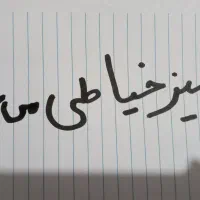 یز خیاطی